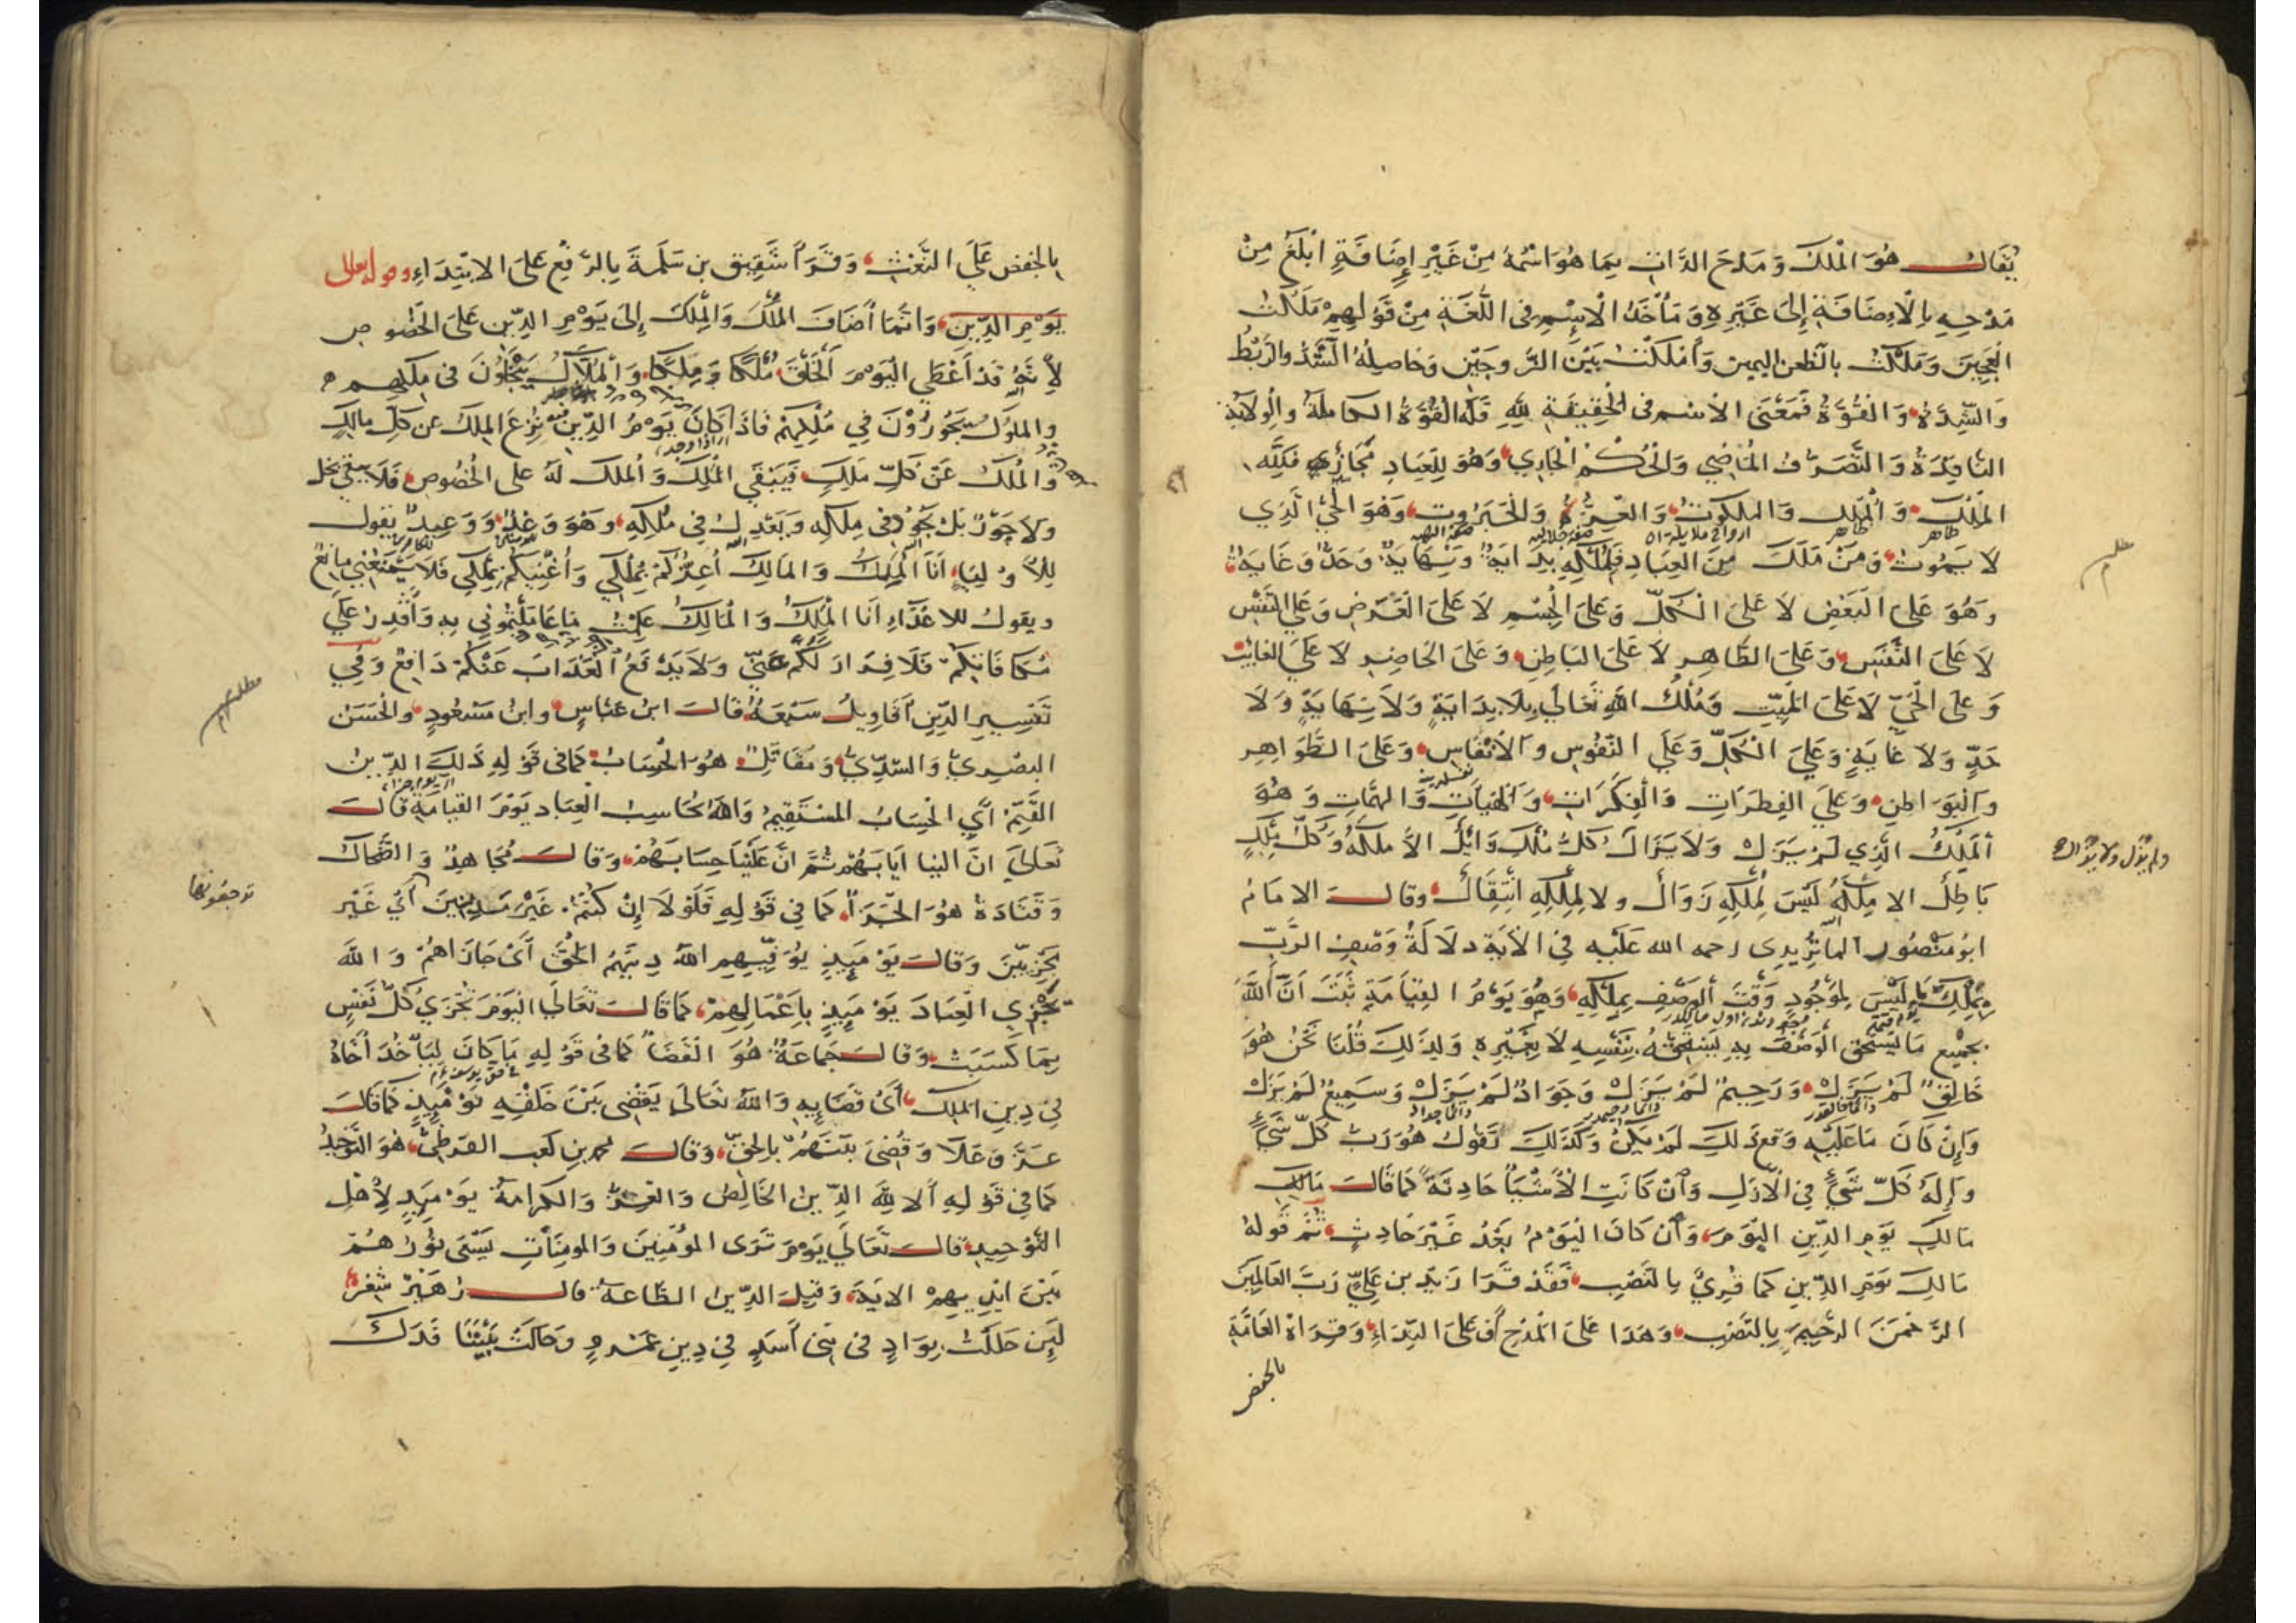 يُقَالُ هُوَ الْمَلِكُ وَمَدْحَ الذَّاتِ بِمَا هُوَ اسْمُهُ مِنْ غَيْرِ إِضَافَةٍ أَبْلَغُ مِنْ
مَدْحِهِ بِالْإِضَافَةِ إِلَى غَيْرِهِ وَمَأْخَذُ الْاِسْمِ فِي اللُّغَةِ مِنْ قَوْلِهِمْ مَلَكْتُ
الْعَجِينَ وَمَلَكْتُ بالطعن اليمين وَأَمْلَكْتُ بَيْنَ الزَّوجَيْنِ وَحَاصِلُهُ الشَّدُّ والرَّبْطُ
وَالشِّدَّةُ وَالْقُوَّةُ فَمَعْنَى الاسْمِ فِي الْحَقِيقَةِ لِلّٰهِ فَلَهُ الْقُوَّةُ الكاملةُ والْوِلَايَةُ
النَّافِذَةُ وَالتَّصَرُّفُ الْمَاضِي وَالْحُكْمُ الْجَارِي وَهُوَ لِلْعِبَادِ مَجَازِيٌّ فَلِلّٰهِ
الْمِلْكُ وَالْمُلْكُ وَالْمَلَكُوتُ وَالْعِزَّةُ وَالْجَبَرُوتُ وَهُوَ الْحَيُّ الَّذِي
ظاهر ظاهر
لَا يَمُوتُ وَمَنْ مَلَكَ مِنَ الْعِبَادِ فَلِمُلْكِهِ بِدَايَةٌ وَنِهَايَةٌ وَحَدٌّ وَغَايَةٌ
وَهُوَ عَلَى الْبَعْضِ لَا عَلَى الْكُلِّ وَعَلَى الْجِسْمِ لَا عَلَى الْعَرَضِ وَعَلَى النَّفْسِ
لَا عَلَى النَّفَسِ وَعَلَى الظَّاهِرِ لَا عَلَى الْبَاطِنِ وَعَلَى الْحَاضِرِ لَا عَلَى الْغَائِبِ
وَعَلَى الْحَيِّ لَا عَلَى الْمَيِّتِ وَمُلْكُ اللهِ تَعَالَى بِلَا بِدَايَةٍ وَلَا نِهَايَةٍ وَلَا
حَدٍّ وَلَا غَايَةٍ وَعَلَى الْكُلِّ وَعَلَى النُّفُوسِ وَالْأَنْفَاسِ وَعَلَى الظَّوَاهِرِ
وَالْبَوَاطِنِ وَعَلَى الْفِطَرَاتِ وَالْفِكَرَاتِ وَالْهَيْئَاتِ وَالهِمَّاتِ وَهُوَ
الْمَلِكُ الَّذِي لَمْ يَزَلْ وَلَا يَزَالُ كُلُّ مُلْكٍ زَائِلٌ إِلَّا مُلْكُهُ وَكُلُّ مِلْكٍ
ولم يَزَل ولا يَزال
بَاطِلٌ إلا مِلْكُهُ لَيْسَ لِمُلْكِهِ زَوَالٌ ولا لِمِلْكِهِ انْتِقَالٌ وقال الامامُ
ابو منصور الماتُرِيدِي رحمه الله عَلَيْهِ فِي الْآيَةِ دلَالَةُ وَصْفِ الرَّبِّ
بِمُلْكِ مَا لَيْسَ بِمَوْجُودٍ وَقْتَ الْوَصْفِ بِمِلْكِهِ وَهُوَ يَوْمُ الْقِيَامَةِ ثَبَتَ أَنَّ اللهَ
بجميع مَا يَسْتَحِقُّ الْوَصْفَ بِهِ يَسْتَحِقُّهُ بِنَفْسِهِ لَا بِغَيْرِهِ وَلِذٰلِكَ قُلْنَا نَحْنُ هُوَ
خَالِقٌ لَمْ يَزَلْ وَرَحِيمٌ لَمْ يَزَلْ وَجَوَادٌ لَمْ يَزَلْ وَسَمِيعٌ لَمْ يَزَلْ
وَإِنْ كَانَ مَا عَلَيْهِ وَقَعَ ذٰلِكَ لَمْ يَكُنْ وَكَذٰلِكَ تَقُولُ هُوَ رَبُّ كُلِّ شَيْءٍ
وَإِلٰهُ كُلِّ شَيْءٍ فِي الْأَزَلِ وَإِنْ كَانَتِ الْأَشْيَاءُ حَادِثَةً كَمَا قَالَ مالك
مَالِكِ يَوْمِ الدِّينِ الْيَوْمَ وَإِنْ كَانَ الْيَوْمُ بَعْدُ غَيْرَ حَادِثٍ ثُمَّ قَوْلُهُ
مَالِكِ يَوْمِ الدِّينِ كَمَا قُرِئَ بِالنَّصْبِ فَقَدْ قَرَأَ زَيْدُ بن عَلِيٍّ رَبَّ الْعَالَمِينَ
الرَّحْمٰنَ الرَّحِيمَ بِالنَّصْبِ وَهٰذَا عَلَى الْمَدْحِ أَوْ عَلَى النِّدَاءِ وَقِرَاءَةُ الْعَامَّةِ
بالخفض
بالخفض عَلَى النَّعْتِ وَقَرَأَ شَقِيقُ بن سَلَمَةَ بِالرَّفْعِ عَلَى الابْتِدَاءِ وقوله تعالى
يَوْمِ الدِّينِ وَإِنَّمَا أَضَافَ الْمُلْكَ وَالْمِلْكَ إِلَى يَوْمِ الدِّينِ عَلَى الْخُصُوصِ
لِأَنَّهُ قَدْ أَعْطَى الْيَوْمَ الْخَلْقَ مُلْكًا وَمِلْكًا وَالْمُلَّاكُ في مِلْكِهِمْ
والملوك يَجُوزُونَ فِي مُلْكِهِمْ فَإِذَا كَانَ يَوْمُ الدِّينِ نُزِعَ الْمِلْكُ عن كُلِّ مالِكٍ
وَالْمُلْكُ عَنْ كُلِّ مَلِكٍ فَيَبْقَى الْمِلْكُ وَالْمُلْكُ لَهُ على الْخُصُوصِ فَلَا يبقى بخل
ولا جَوْرٌ بَلْ في مِلْكِهِ وَيَعْدِلُ فِي مُلْكِهِ وَهُوَ وَعْدٌ وَوَعِيدٌ يقول
لِلْأَوْلِيَاءِ أَنَا الْمَلِكُ وَالْمَالِكُ أُعِزُّكُمْ بِمُلْكِي وَأُغْنِيكُمْ بِمِلْكِي فَلَا يَمْنَعُنِي مانِعٌ
ويقول للاعْدَاءِ أَنَا الْمَلِكُ وَالْمَالِكُ عَلِمْتُ مَا عَامَلْتُمُونِي بِهِ وَأَقْدِرُ عَلَى
مُكَافَاتِكُمْ فَلَا فِرَارَ لَكُمْ عَنِّي وَلَا يَدْفَعُ الْعَذَابَ عَنْكُمْ دَافِعٌ وَفِي
تَفْسِيرِ الدِّينِ أَقَاوِيلُ سَبْعَةٌ قال ابنُ عَبَّاسٍ وابنُ مَسْعُودٍ وَالْحَسَنُ
مطلب
البصْرِيُّ وَالسُّدِّيُّ وَمُقَاتِلٌ هُوَ الْحِسَابُ كَمَا في قَوْلِهِ ذٰلِكَ الدِّينُ
الْقَيِّمُ أَيِ الْحِسَابُ الْمُسْتَقِيمُ وَاللهُ يُحَاسِبُ الْعِبَادَ يَوْمَ الْقِيَامَةِ قَالَ
تَعَالَى انَّ الينا إِيَابَهُمْ ثُمَّ إِنَّ عَلَيْنَا حِسَابَهُمْ وَقال مُجَاهِدٌ وَالضَّحَّاكُ
وَقَتَادَةُ هُوَ الْجَزَاءُ كَمَا فِي قَوْلِهِ فَلَوْلَا إِنْ كُنْتُمْ غَيْرَ مَدِينِينَ أَيْ غَيْرَ
ترجعونها
مَجْزِيِّينَ وَقَالَ يَوْمَئِذٍ يُوَفِّيهِمُ اللهُ دِينَهُمُ الْحَقَّ أَيْ جَازَاهُمْ وَاللهُ
يَجْزِي الْعِبَادَ يَوْمَئِذٍ بِأَعْمَالِهِمْ كَمَا قَالَ تَعَالَى الْيَوْمَ تُجْزَى كُلُّ نَفْسٍ
بِمَا كَسَبَتْ وَقَالَ جَمَاعَةٌ هُوَ الْقَضَاءُ كَمَا في قَوْلِهِ مَا كَانَ لِيَأْخُذَ أَخَاهُ
فِي دِينِ الْمَلِكِ أَيْ قَضَائِهِ وَاللهُ تَعَالَى يَقْضِي بَيْنَ خَلْقِهِ يَوْمَئِذٍ كَمَا قَالَ
عَزَّ وَعَلَا وَقُضِيَ بَيْنَهُمْ بِالْحَقِّ وَقال محمد بن كَعْب القُرَظِيُّ هُوَ التَّوْحِيدُ
كَمَا فِي قَوْلِهِ أَلَا لِلّٰهِ الدِّينُ الْخَالِصُ وَالْعِزُّ وَالْكَرَامَةُ يَوْمَئِذٍ لِأَهْلِ
التَّوْحِيدِ قال تَعَالَى يَوْمَ تَرَى الْمُؤْمِنِينَ وَالْمُومِنَاتِ يَسْعَى نُورُهُمْ
بَيْنَ أَيْدِيهِمْ الآيَةَ وَقِيلَ الدِّينُ الطَّاعَة قال زُهَيْرٌ شعر
لَئِنْ حَلَلْتُ بِوَادٍ في بَنِي أَسَدٍ فِي دِينِ عَمْرٍو وَحَالَتْ بَيْنَنَا فَدَكُ